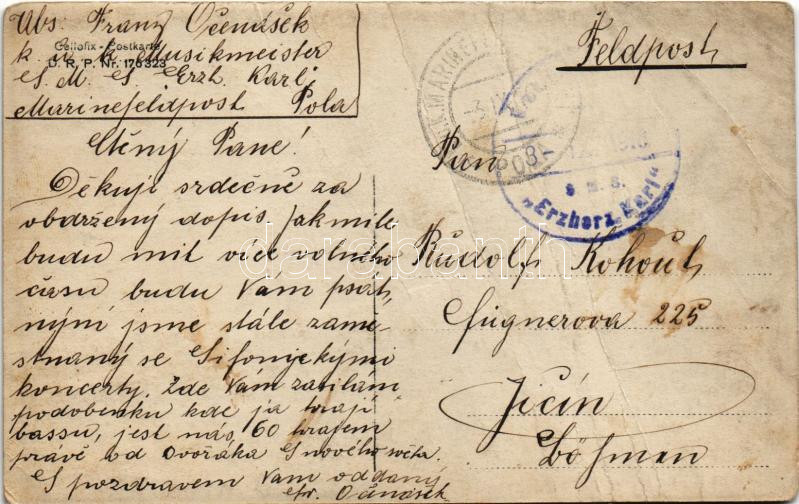 Abs. Franz Očenášek
Cellofix - Postkarte
k. u. k. Musikmeister
D. R. P. Nr. 176323
S. M. S. Erzh. Karl
Marinefeldpost Pola
Feldpost
K.u.K. MARINEFELD
S. M. S.
„Erzherz. Karl“
Ctěný Pane!
Děkuji srdečně za
obdržený dopis. Jakmile
budu mít více volného
času budu Vam psát,
nýní jsme stále zame-
stnaný se Sifonijckými
koncerty. Zde Vám zasílám
podobenku kde ja hraji
bassu, jest nás, 60 hrajem
právě od Dvořáka S nového světa.
S pozdravem Vam oddaný
Fr. Očenášek
Pan
Rudolf Kohout
Fügnerova 225
Jičín
Böhmen
darabanth